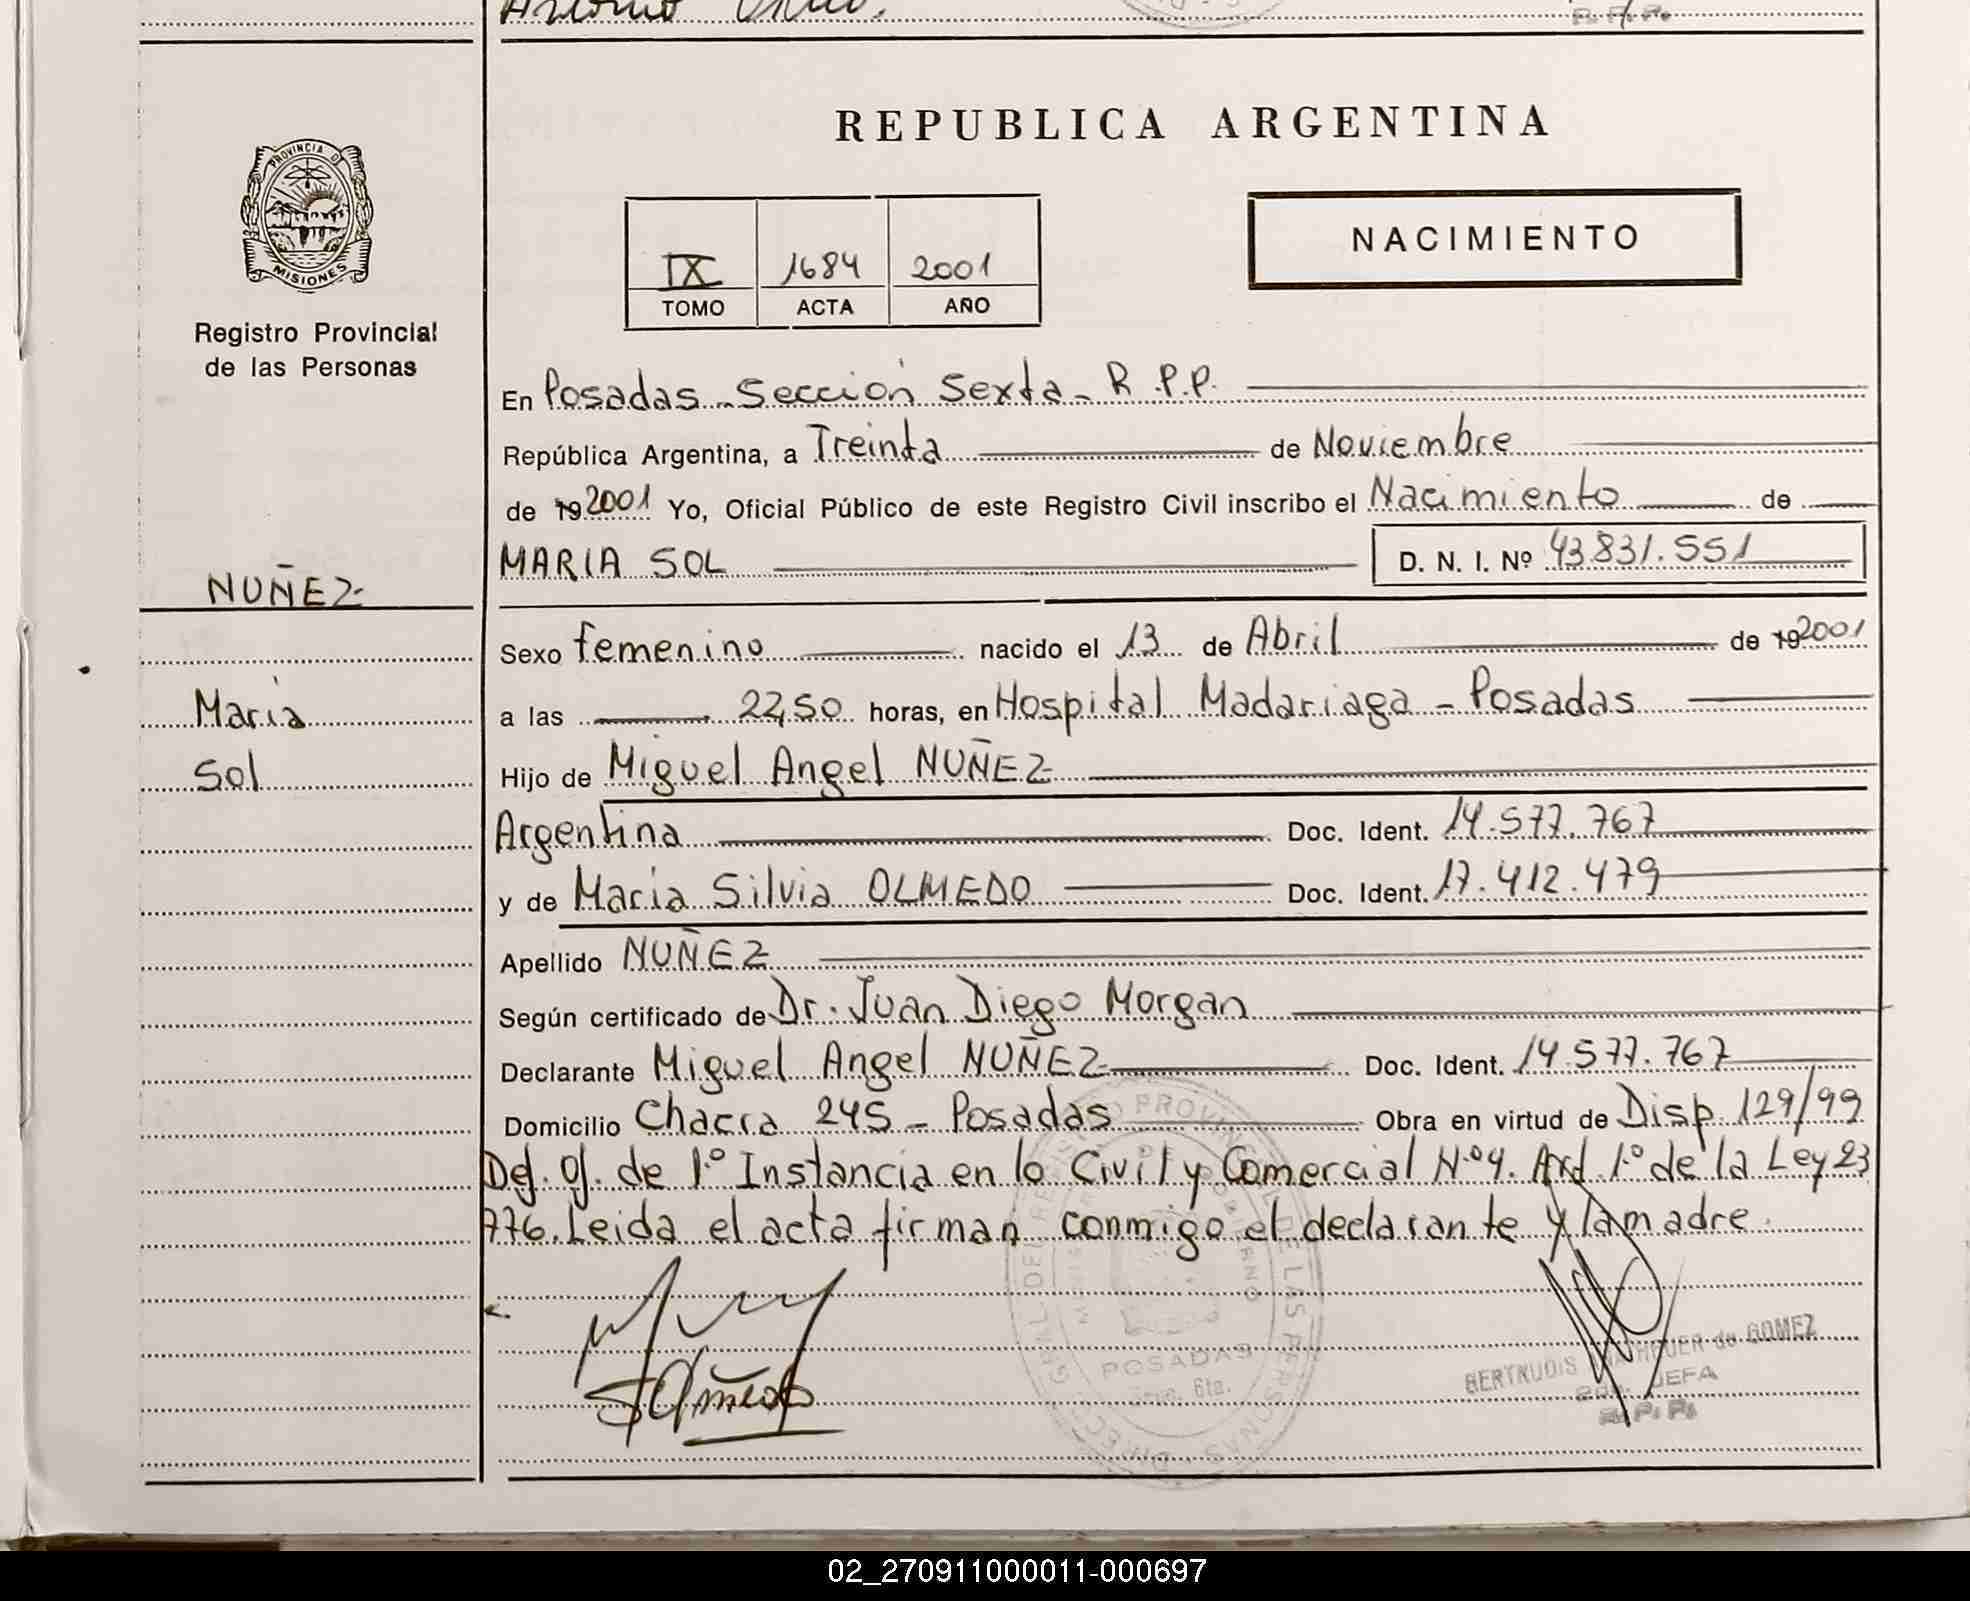 PROVINCIA DE
MISIONES
Registro Provincial
de las Personas
NUÑEZ
Maria
Sol
REPUBLICA ARGENTINA
IX 1684 2001
TOMO ACTA AÑO
NACIMIENTO
En Posadas - Sección Sexta - R.P.P.
República Argentina, a Treinta de Noviembre
de 19 2001 Yo, Oficial Público de este Registro Civil inscribo el Nacimiento de
MARIA SOL D. N. I. Nº 43.831.551
Sexo femenino nacido el 13 de Abril de 19 2001
a las 22,50 horas, en Hospital Madariaga - Posadas
Hijo de Miguel Angel NUÑEZ
Argentina Doc. Ident. 14.577.767
y de Maria Silvia OLMEDO Doc. Ident. 17.412.479
Apellido NUÑEZ
Según certificado de Dr. Juan Diego Morgan
Declarante Miguel Angel NUÑEZ Doc. Ident. 14.577.767
Domicilio Chacra 245 - Posadas Obra en virtud de Disp. 129/99
Def. Of. de 1º Instancia en lo Civil y Comercial Nº 4. Art. 1º de la Ley 23
776. Leida el acta firman conmigo el declarante y la madre.
POSADAS
GERTRUDIS de GOMEZ
JEFA
R. P. P.
02_270911000011-000697